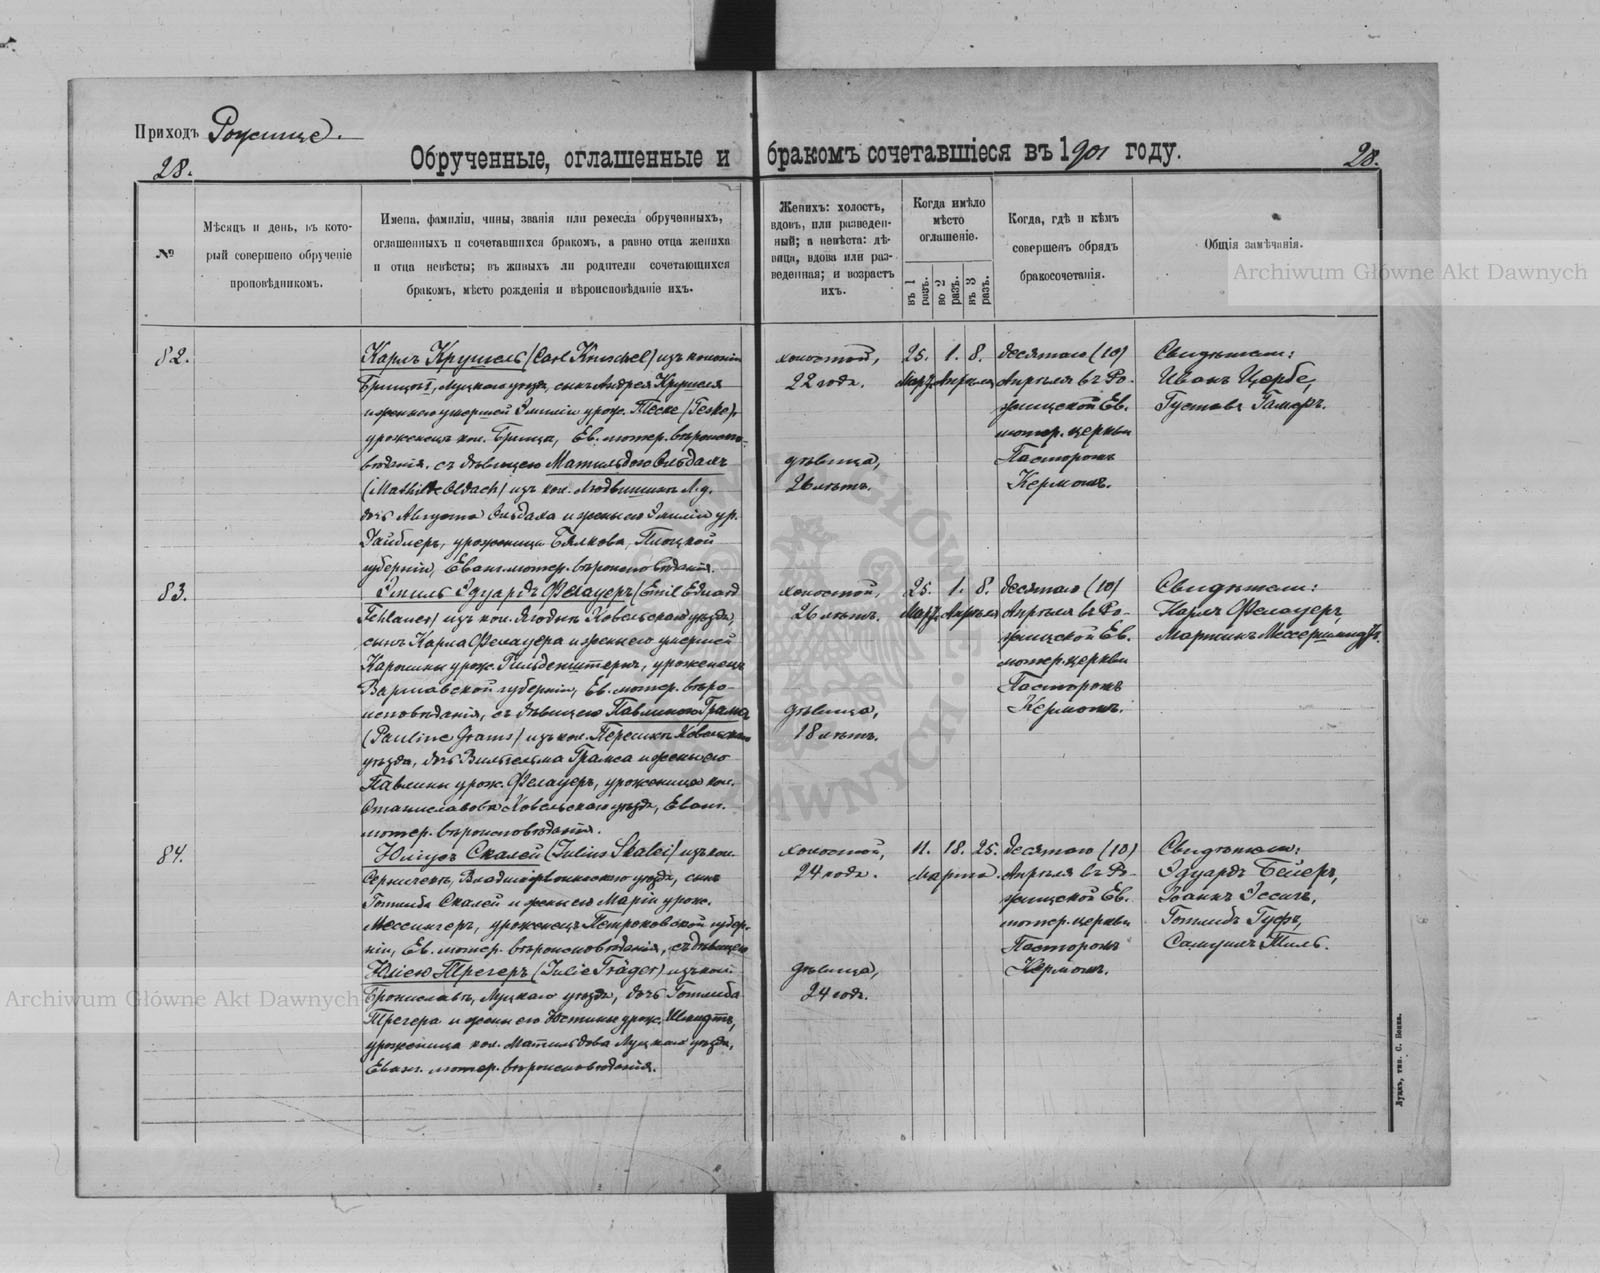 Приходъ Рожище.
28.
Обрученные, оглашенные и бракомъ сочетавшіеся въ 1901 году.
28.
№
Мѣсяцъ и день, въ кото-
рый совершено обрученіе
проповѣдникомъ.
Имена, фамиліи, чины, званія или ремесла обрученныхъ,
оглашенныхъ и сочетавшихся бракомъ, а равно отца жениха
и отца невѣсты; въ живыхъ ли родители сочетающихся
бракомъ, мѣсто рожденія и вѣроисповѣданіе ихъ.
Женихъ: холостъ,
вдовъ, или разведен-
ный; а невѣста: дѣ-
вица, вдова или раз-
веденная; и возрастъ
ихъ.
Когда имѣло
мѣсто
оглашеніе.
въ 1 разъ.
во 2 разъ.
въ 3 разъ.
Когда, гдѣ и кѣмъ
совершенъ обрядъ
бракосочетанія.
Общія замѣчанія.
Archiwum Główne Akt Dawnych
82.
Карлъ Крушель (Carl Kruschel) изъ колоніи
Луцкаго уѣзда, сынъ Андрея Крушеля
и жены его умершей Эмиліи урож. Теске (Teske),
уроженецъ кол. Ев. лютер. вѣроиспо-
вѣданія, съ дѣвицею Матильдою Ольдахъ
(Mathilde Oldach) изъ кол. Людвишинъ Л.у.
дочь Августа Ольдаха и жены его Эмиліи ур.
Дайблеръ, уроженица Плоцкой
губерніи, Еванг. лютер. вѣроисповѣданія.
холостой,
22 года.
дѣвица,
26 лѣтъ.
25. 1. 8.
Марта Апрѣля
десятаго (10)
Апрѣля въ Ро-
жищской Ев.
лютер. церкви
Пасторомъ
Кермомъ.
Свидѣтели:
Иванъ Цербе,
Густавъ Гамеръ.
83.
Эмиль Эдуардъ Фелауеръ (Emil Eduard
Fehlauer) изъ кол. Ягодинъ Ковельскаго уѣзда,
сынъ Карла Фелауера и жены его умершей
Каролины урож. Гильденштернъ, уроженецъ
Варшавской губерніи, Ев. лютер. вѣро-
исповѣданія, съ дѣвицею Павлиною Грамсъ
(Pauline Grams) изъ кол. Ковельскаго
уѣзда, дочь Вильгельма Грамса и жены его
Павлины урож. Фелауеръ, уроженица кол.
Станиславовка Ковельскаго уѣзда, Еванг.
лютер. вѣроисповѣданія.
холостой,
26 лѣтъ.
дѣвица,
18 лѣтъ.
25. 1. 8.
Марта Апрѣля
десятаго (10)
Апрѣля въ Ро-
жищской Ев.
лютер. церкви
Пасторомъ
Кермомъ.
Свидѣтели:
Карлъ Фелауеръ,
Мартинъ Мессершмидтъ.
84.
Юліусъ Скалей (Julius Skalei) изъ кол.
Владимірволынскаго уѣзда, сынъ
Готлиба Скалей и жены его Маріи урож.
Мессингеръ, уроженецъ Петроковской губер-
ніи, Ев. лютер. вѣроисповѣданія, съ дѣвицею
Юліею Трегеръ (Julie Träger) изъ кол.
Брониславъ, Луцкаго уѣзда, дочь Готлиба
Трегера и жены его Юстины урож. Шмидтъ,
уроженица кол. Матильдова Луцкаго уѣзда,
Еванг. лютер. вѣроисповѣданія.
холостой,
24 года.
дѣвица,
24 год.
11. 18. 25.
Марта.
десятаго (10)
Апрѣля въ Ро-
жищской Ев.
лютер. церкви
Пасторомъ
Кермомъ.
Свидѣтели:
Эдуардъ Бейеръ,
Іоаннъ Эссигъ,
Готлибъ Гуфъ,
Самуилъ Тиль.
Archiwum Główne Akt Dawnych
Луцкъ, тип. С. Бокка.